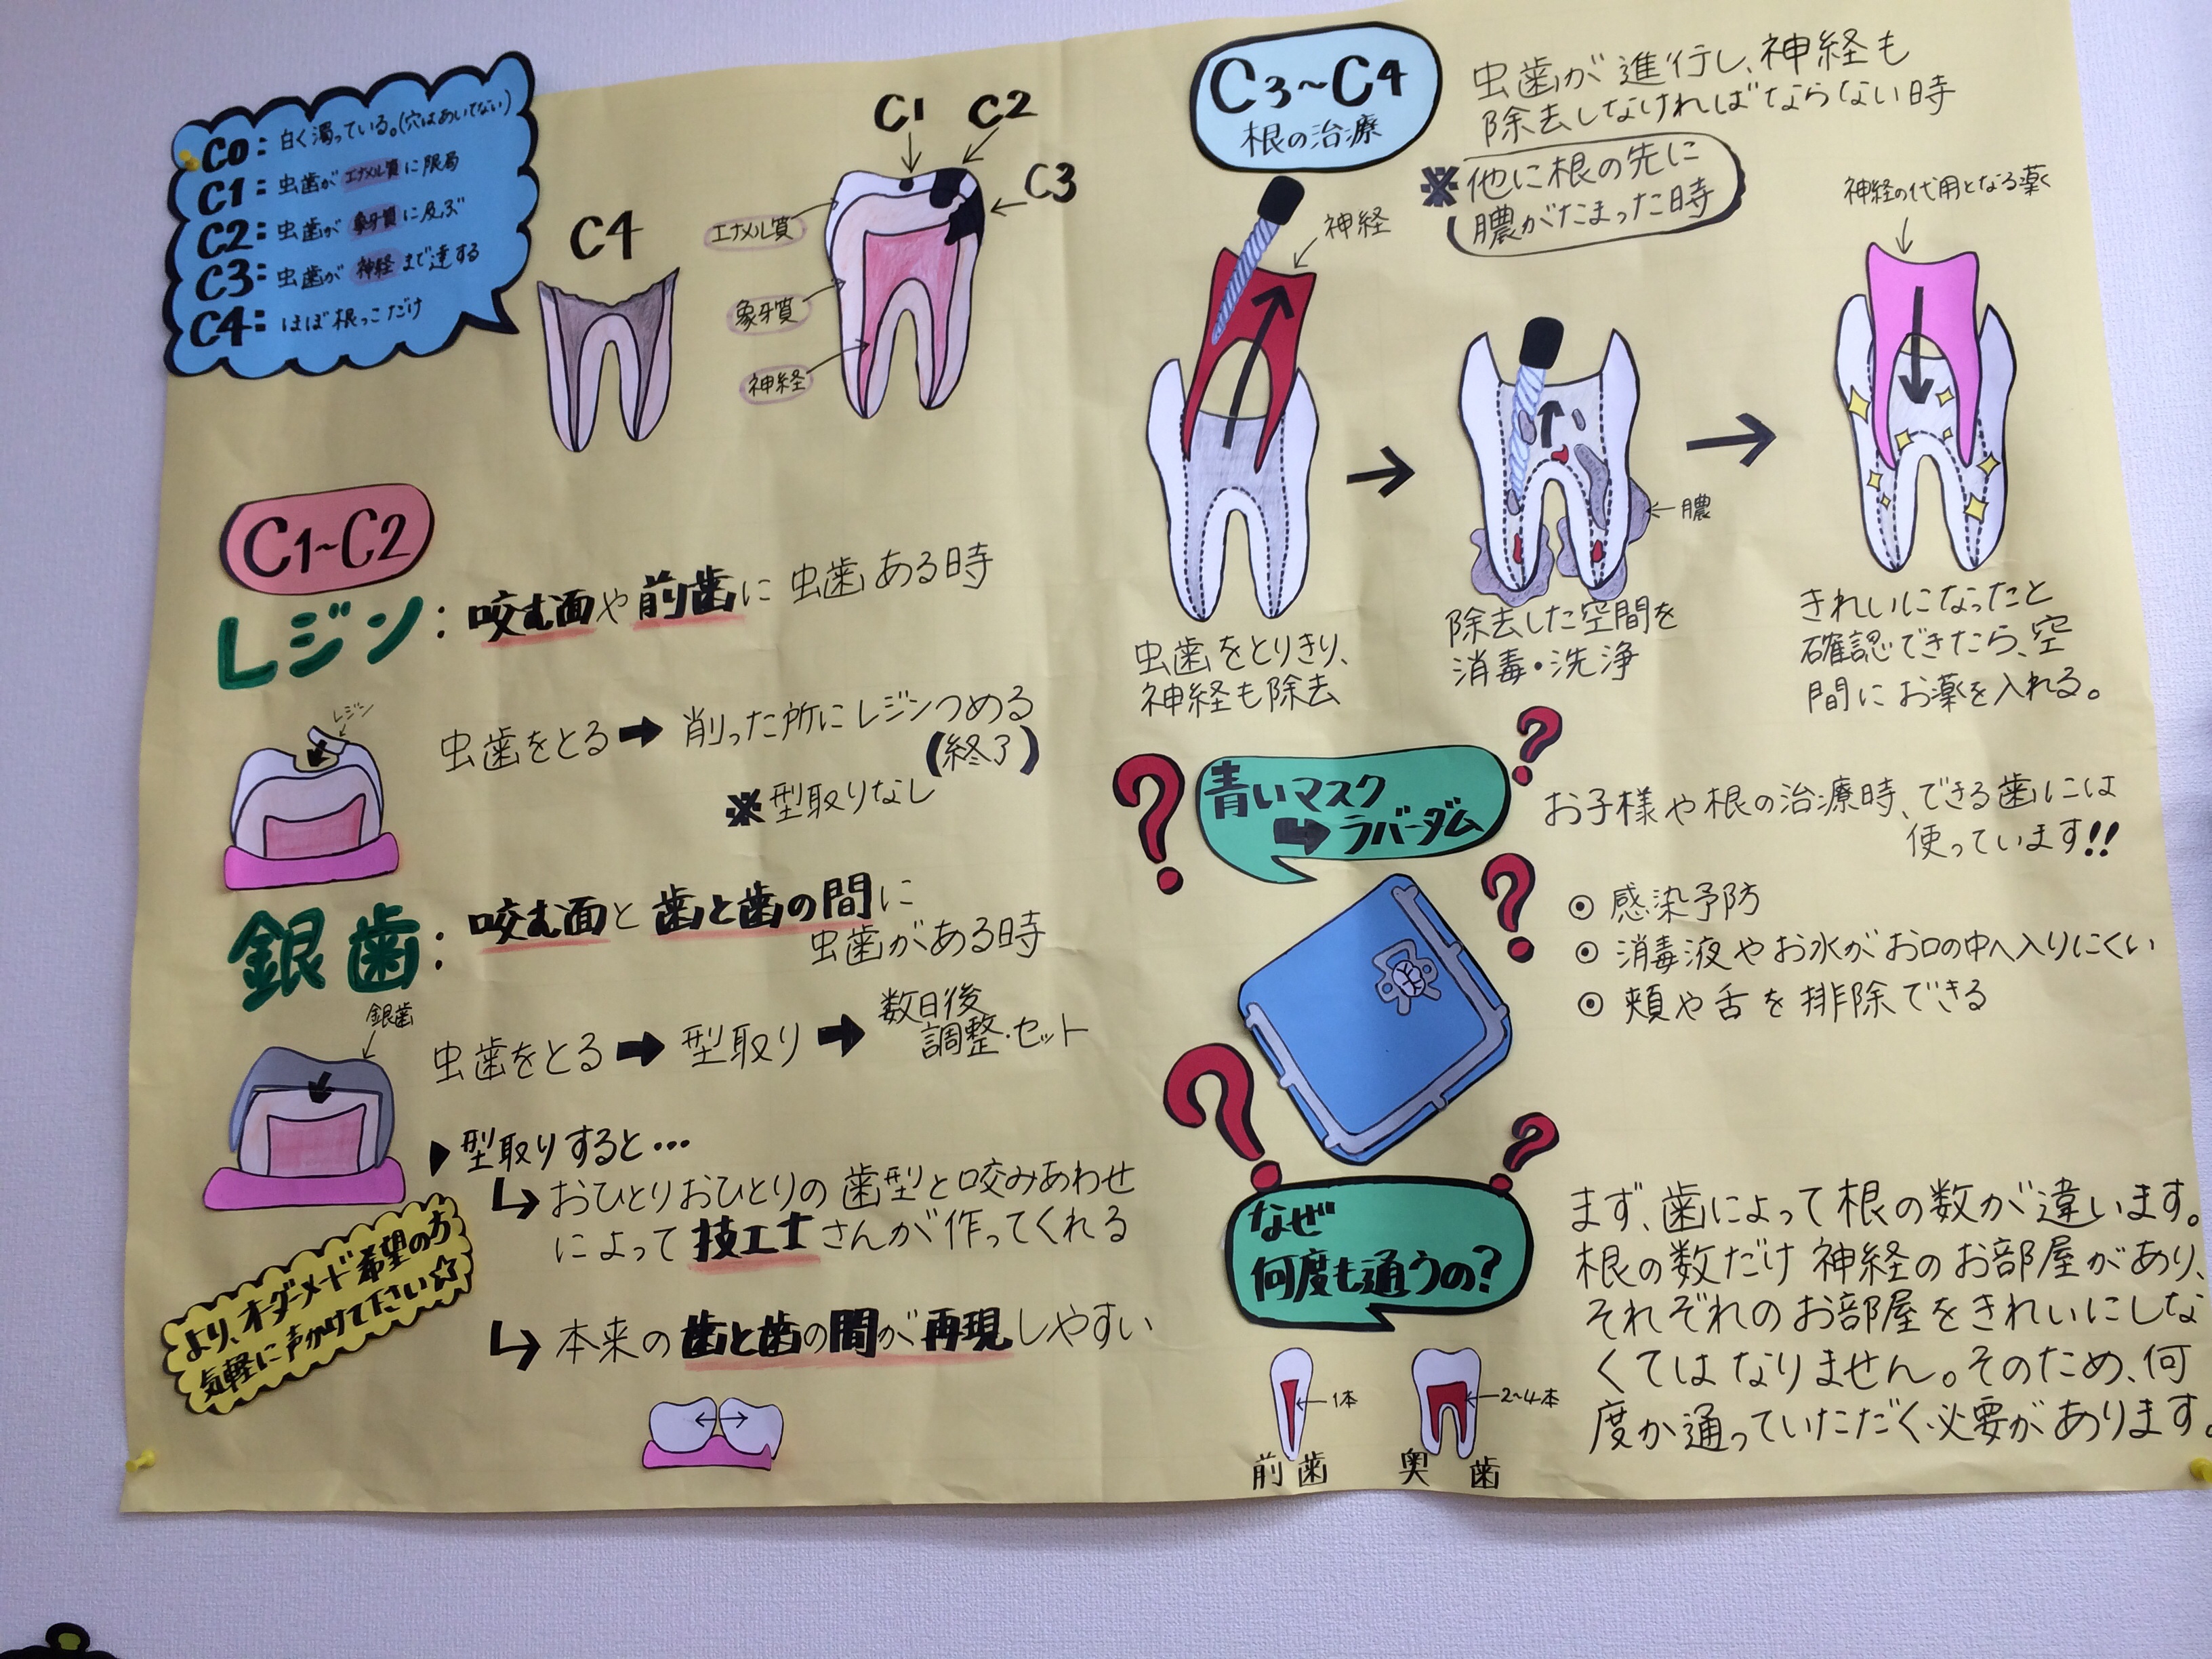 C0：白く濁っている。(穴はあいてない)
C1：虫歯がエナメル質に限局
C2：虫歯が象牙質に及ぶ
C3：虫歯が神経まで達する
C4：ほぼ根っこだけ
C4
C1
C2
C3
エナメル質
象牙質
神経
C1~C2
レジン：咬む面や前歯に虫歯ある時
レジン
虫歯をとる➡削った所にレジンつめる
(終了)
※型取りなし
銀歯：咬む面と歯と歯の間に
虫歯がある時
銀歯
虫歯をとる➡型取り➡数日後
調整・セット
▶型取りすると…
↳おひとりおひとりの歯型と咬みあわせ
によって技工士さんが作ってくれる
↳本来の歯と歯の間が再現しやすい
より、オーダーメード希望の方
気軽に声かけて下さい☆
C3~C4
根の治療
虫歯が進行し、神経も
除去しなければならない時
※他に根の先に
膿がたまった時
神経
膿
神経の代用となる薬
虫歯をとりきり、
神経も除去
除去した空間を
消毒・洗浄
きれいになったと
確認できたら、空
間にお薬を入れる。
青いマスク
➡ラバーダム
お子様や根の治療時、できる歯には
使っています!!
◉感染予防
◉消毒液やお水がお口の中へ入りにくい
◉頬や舌を排除できる
なぜ
何度も通うの?
まず、歯によって根の数が違います。
根の数だけ神経のお部屋があり、
それぞれのお部屋をきれいにしな
くてはなりません。そのため、何
度か通っていただく必要があります。
1本
前歯
2~4本
奥歯